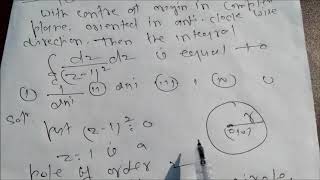 with centre at origin in complex
plane, oriented in anti-clock wise
direction. Then the integral
∫ dz/(z-1)² dz is equal to
(i) 1/2πi (ii) 2πi (iii) 1 (iv) 0
Solⁿ put (z-1)² = 0
z = 1 is a
pole of order
(0,0)